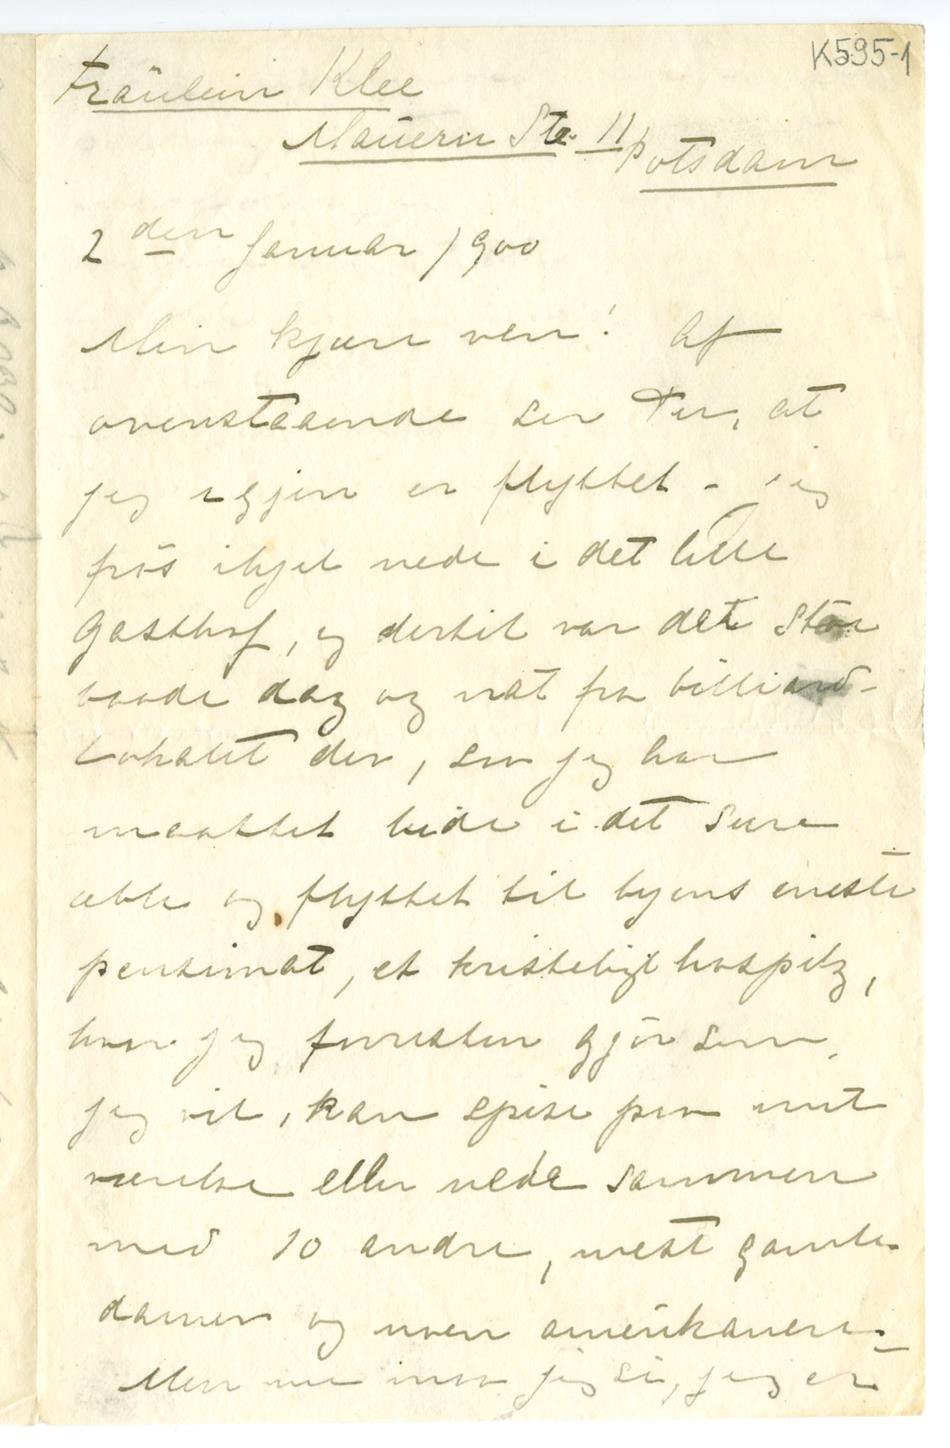 K595-1
Fräulein Klee
Mauern Str. 11 Potsdam
2 den Januar 1900
Min kjære ven! Af
ovenstaaende ser Fru, at
jeg igjen er flyttet - jeg
frös ihjel nede i det lille
Gasthof, og dertil var det støi
baade dag og nat fra billiard-
Lokalet der, saa jeg har
maattet bide i det sure
æble og flyttet til byens eneste
pensionat, et kristeligt hospitz,
hvor jeg forresten gjör som
jeg vil, kan spise paa mit
værelse eller nede sammen
med 10 andre, mest gamle
damer og noen amerikanere.
Men nu maa jeg si, jeg er